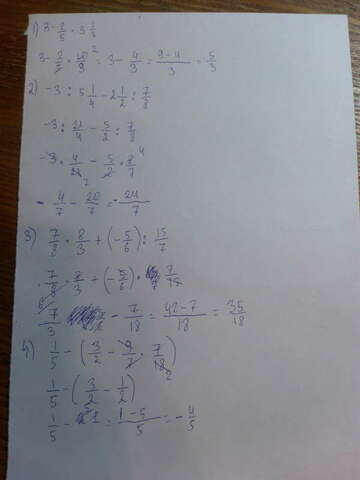 1) 3 - 2/5 · 3 1/3
3 - 2/5 · 10/3 ² = 3 - 4/3 = 9-4/3 = 5/3
2) -3 : 5 1/4 - 2 1/2 : 7/8
-3 : 21/4 - 5/2 : 7/8
-3 · 4/21 7 - 5/2 · 8/7 4
- 4/7 - 20/7 = - 24/7
3) 7/8 · 8/3 + (- 5/6) : 15/7
7/8 · 8/3 + (- 5/6) · 7/15
6 7/3 - 7/18 = 42-7/18 = 35/18
4) 1/5 - (3/2 - 9/7 · 7/18 2)
1/5 - (3/2 - 1/2)
1/5 - 1 5 = 1-5/5 = - 4/5